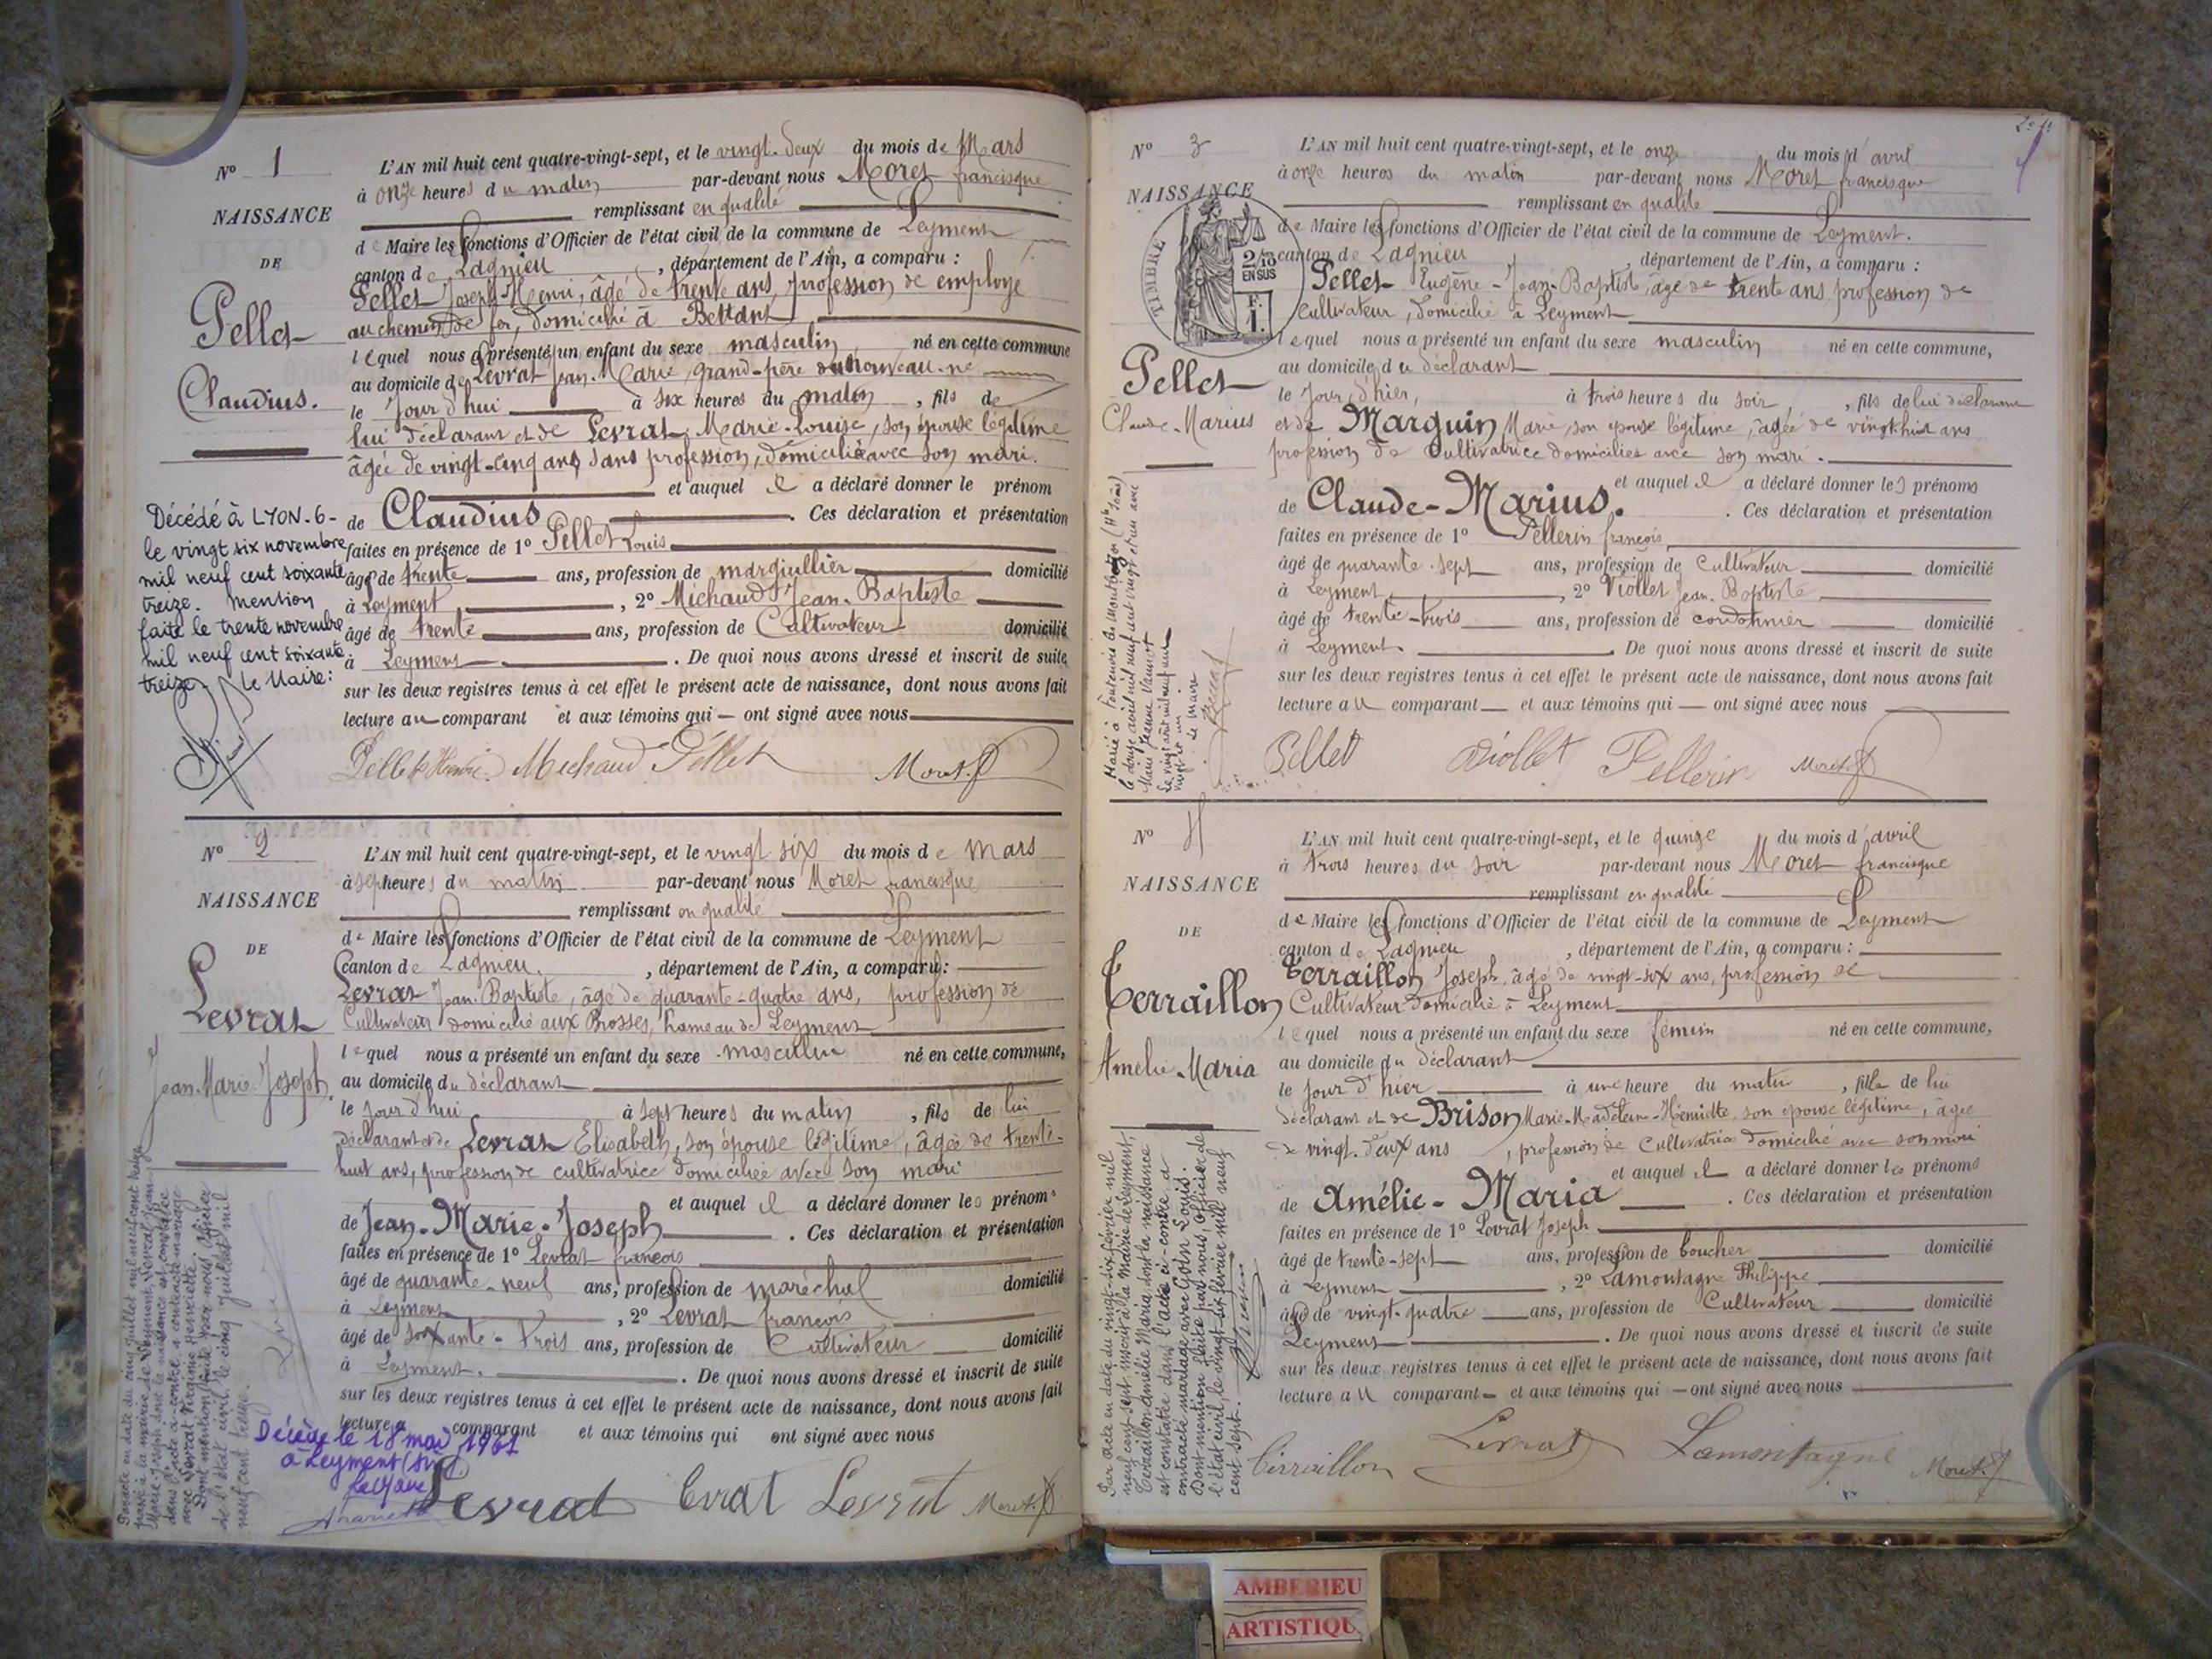 N° 1
NAISSANCE
DE
Pellet
Claudius.
L'AN mil huit cent quatre-vingt-sept, et le vingt-deux du mois de Mars
à onze heures du matin par-devant nous Moret francisque
remplissant en qualité
de Maire les fonctions d'Officier de l'état civil de la commune de Leyment
canton de Lagnieu, département de l'Ain, a comparu :
Pellet Joseph-Henri, âgé de trente ans, profession de employé
au chemin de fer, domicilié à Bettant
lequel nous a présenté un enfant du sexe masculin né en cette commune
au domicile de Levrat Jean-Marie, grand-père du nouveau-né
le jour d'hui à six heures du matin, fils de
lui déclarant et de Levrat Marie-Louise, son épouse légitime
âgée de vingt-cinq ans, sans profession, domiciliée avec son mari.
et auquel il a déclaré donner le prénom
de Claudius. Ces déclaration et présentation
faites en présence de 1° Pellet Louis
âgé de trente ans, profession de marguillier domicilié
à Leyment, 2° Michaud Jean-Baptiste
âgé de trente ans, profession de Cultivateur domicilié
à Leyment. De quoi nous avons dressé et inscrit de suite
sur les deux registres tenus à cet effet le présent acte de naissance, dont nous avons fait
lecture au comparant et aux témoins qui ont signé avec nous
Pellet Henri Michaud Pellet Moret. f
Décédé à LYON-6-
le vingt six novembre
mil neuf cent soixante
treize. Mention
faite le trente novembre
mil neuf cent soixante
treize. Le Maire :
N° 2
NAISSANCE
DE
Levrat
Jean-Marie-Joseph.
L'AN mil huit cent quatre-vingt-sept, et le vingt six du mois de Mars
à sept heures du matin par-devant nous Moret francisque
remplissant en qualité
de Maire les fonctions d'Officier de l'état civil de la commune de Leyment
canton de Lagnieu, département de l'Ain, a comparu :
Levrat Jean-Baptiste, âgé de quarante-quatre ans, profession de
Cultivateur domicilié aux Brosses, hameau de Leyment
lequel nous a présenté un enfant du sexe masculin né en cette commune,
au domicile du déclarant
le jour d'hui à sept heures du matin, fils de lui
déclarant et de Levrat Elisabeth, son épouse légitime, âgée de trente-
huit ans, profession de cultivatrice domiciliée avec son mari
et auquel il a déclaré donner les prénoms
de Jean-Marie-Joseph. Ces déclaration et présentation
faites en présence de 1° Levrat françois
âgé de quarante-neuf ans, profession de maréchal domicilié
à Leyment, 2° Levrat françois
âgé de soixante-trois ans, profession de Cultivateur domicilié
à Leyment. De quoi nous avons dressé et inscrit de suite
sur les deux registres tenus à cet effet le présent acte de naissance, dont nous avons fait
lecture a comparant et aux témoins qui ont signé avec nous
Levrat Levrat Levrat Moret. f
Par acte en date du cinq juillet mil neuf cent treize
passé à la mairie de Leyment, Levrat Jean
Marie-Joseph dont la naissance est constatée
dans l'acte ci-contre a contracté mariage
avec Levrat Virginie Henriette.
Dont mention faite par nous, officier
de l'état civil le cinq juillet mil
neuf cent treize.
Décédé le 18 mai 1961
à Leyment (Ain)
Le Maire
N° 3
NAISSANCE
TIMBRE
2/10 EN SUS
F. 1.
Pellet
Claude-Marius
L'AN mil huit cent quatre-vingt-sept, et le onze du mois d'avril
à onze heures du matin par-devant nous Moret francisque
remplissant en qualité
de Maire les fonctions d'Officier de l'état civil de la commune de Leyment.
canton de Lagnieu, département de l'Ain, a comparu :
Pellet Eugène-Jean-Baptiste, âgé de trente ans profession de
Cultivateur, domicilié à Leyment
lequel nous a présenté un enfant du sexe masculin né en cette commune,
au domicile du déclarant
le jour d'hier, à trois heures du soir, fils de lui déclarant
et de Marguin Marie, son épouse légitime, âgée de vingt-huit ans
profession de Cultivatrice domiciliée avec son mari.
et auquel il a déclaré donner les prénoms
de Claude-Marius. Ces déclaration et présentation
faites en présence de 1° Pellerin françois,
âgé de quarante-sept ans, profession de Cultivateur domicilié
à Leyment, 2° Viollet Jean-Baptiste
âgé de trente-trois ans, profession de cordonnier domicilié
à Leyment. De quoi nous avons dressé et inscrit de suite
sur les deux registres tenus à cet effet le présent acte de naissance, dont nous avons fait
lecture au comparant et aux témoins qui ont signé avec nous
Pellet Viollet Pellerin Moret. f
Marié à Fontenois les Montbozon (Hte Saône)
le douze août mil neuf cent vingt et un avec
Marie Jeanne
Le vingt août mil neuf cent
vingt et un. Le Maire
N° 4
NAISSANCE
DE
Terraillon
Amélie-Maria
L'AN mil huit cent quatre-vingt-sept, et le quinze du mois d'avril
à trois heures du soir par-devant nous Moret francisque
remplissant en qualité
de Maire les fonctions d'Officier de l'état civil de la commune de Leyment
canton de Lagnieu, département de l'Ain, a comparu :
Terraillon Joseph, âgé de vingt-six ans, profession de
Cultivateur domicilié à Leyment
lequel nous a présenté un enfant du sexe féminin né en cette commune,
au domicile du déclarant
le jour d'hier à une heure du matin, fille de lui
déclarant et de Brison Marie-Madeleine-Henriette, son épouse légitime, âgée
de vingt-deux ans, profession de Cultivatrice domicilié avec son mari
et auquel il a déclaré donner les prénoms
de Amélie-Maria. Ces déclaration et présentation
faites en présence de 1° Levrat Joseph
âgé de trente-sept ans, profession de boucher domicilié
à Leyment, 2° Lamontagne Philippe
âgé de vingt-quatre ans, profession de Cultivateur domicilié
Leyment. De quoi nous avons dressé et inscrit de suite
sur les deux registres tenus à cet effet le présent acte de naissance, dont nous avons fait
lecture au comparant et aux témoins qui ont signé avec nous
Terraillon Levrat Lamontagne Moret. f
Par acte en date du vingt-six février mil
neuf cent sept inscrit à la Mairie de Leyment,
Terraillon Amélie Maria, dont la naissance
est constatée dans l'acte ci-contre, a
contracté mariage avec Goton Louis.
Dont mention faite par nous, Officier de
l'état civil, le vingt-six février mil neuf
cent sept.
AMBERIEU
ARTISTIQU